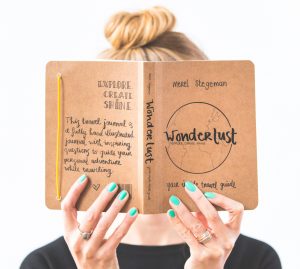 EXPLORE
CREATE
SHINE
This travel journal is
a fully hand illustrated
journal with inspiring
questions to guide your
personal adventure
while travelling.
Merel Stegeman
Wonderlust
Merel Stegeman
Wonderlust
EXPLORE, CREATE, SHINE
your inside travel guide